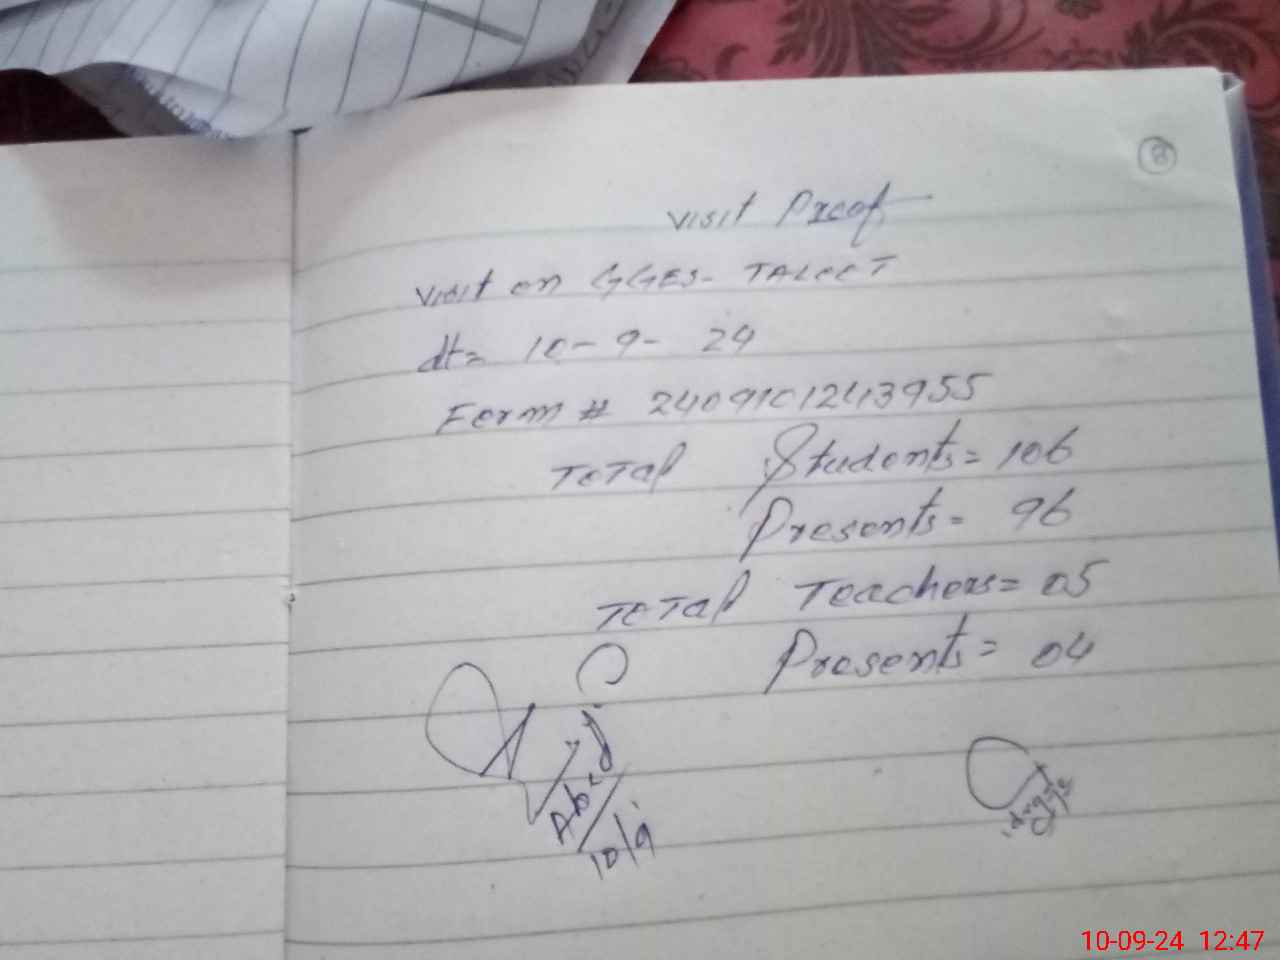 8
Visit Proof
Visit on GGES- TALOOT
dt= 10-9- 24
Form # 2409101243955
Total Students= 106
Presents= 96
Total Teachers= 05
Presents= 04
10/9
10-09-24 12:47